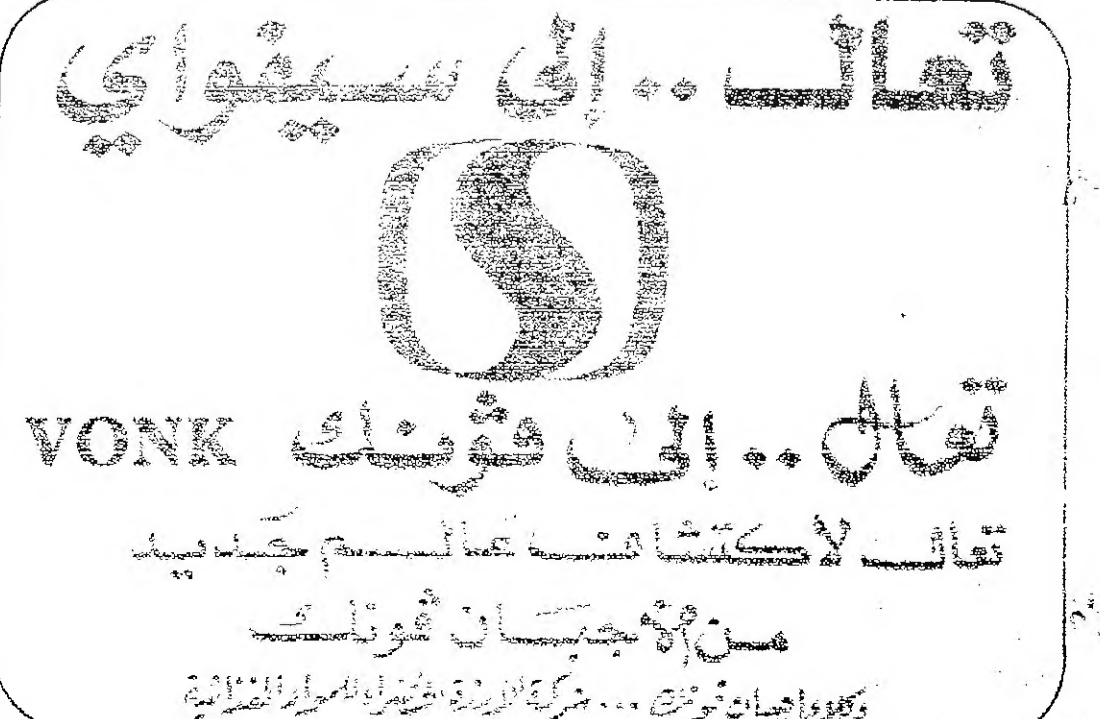 تعال .. إلى سيفواي
تعال .. إلى ڤونك VONK
تعال لاكتشاف عالم جديد
من أجبان ڤونك